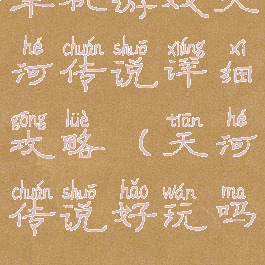 单机游戏天
hé chuán shuō xiáng xì
河传说详细
gōng lüè tiān hé
攻略（天河
chuán shuō hǎo wán ma
传说好玩吗